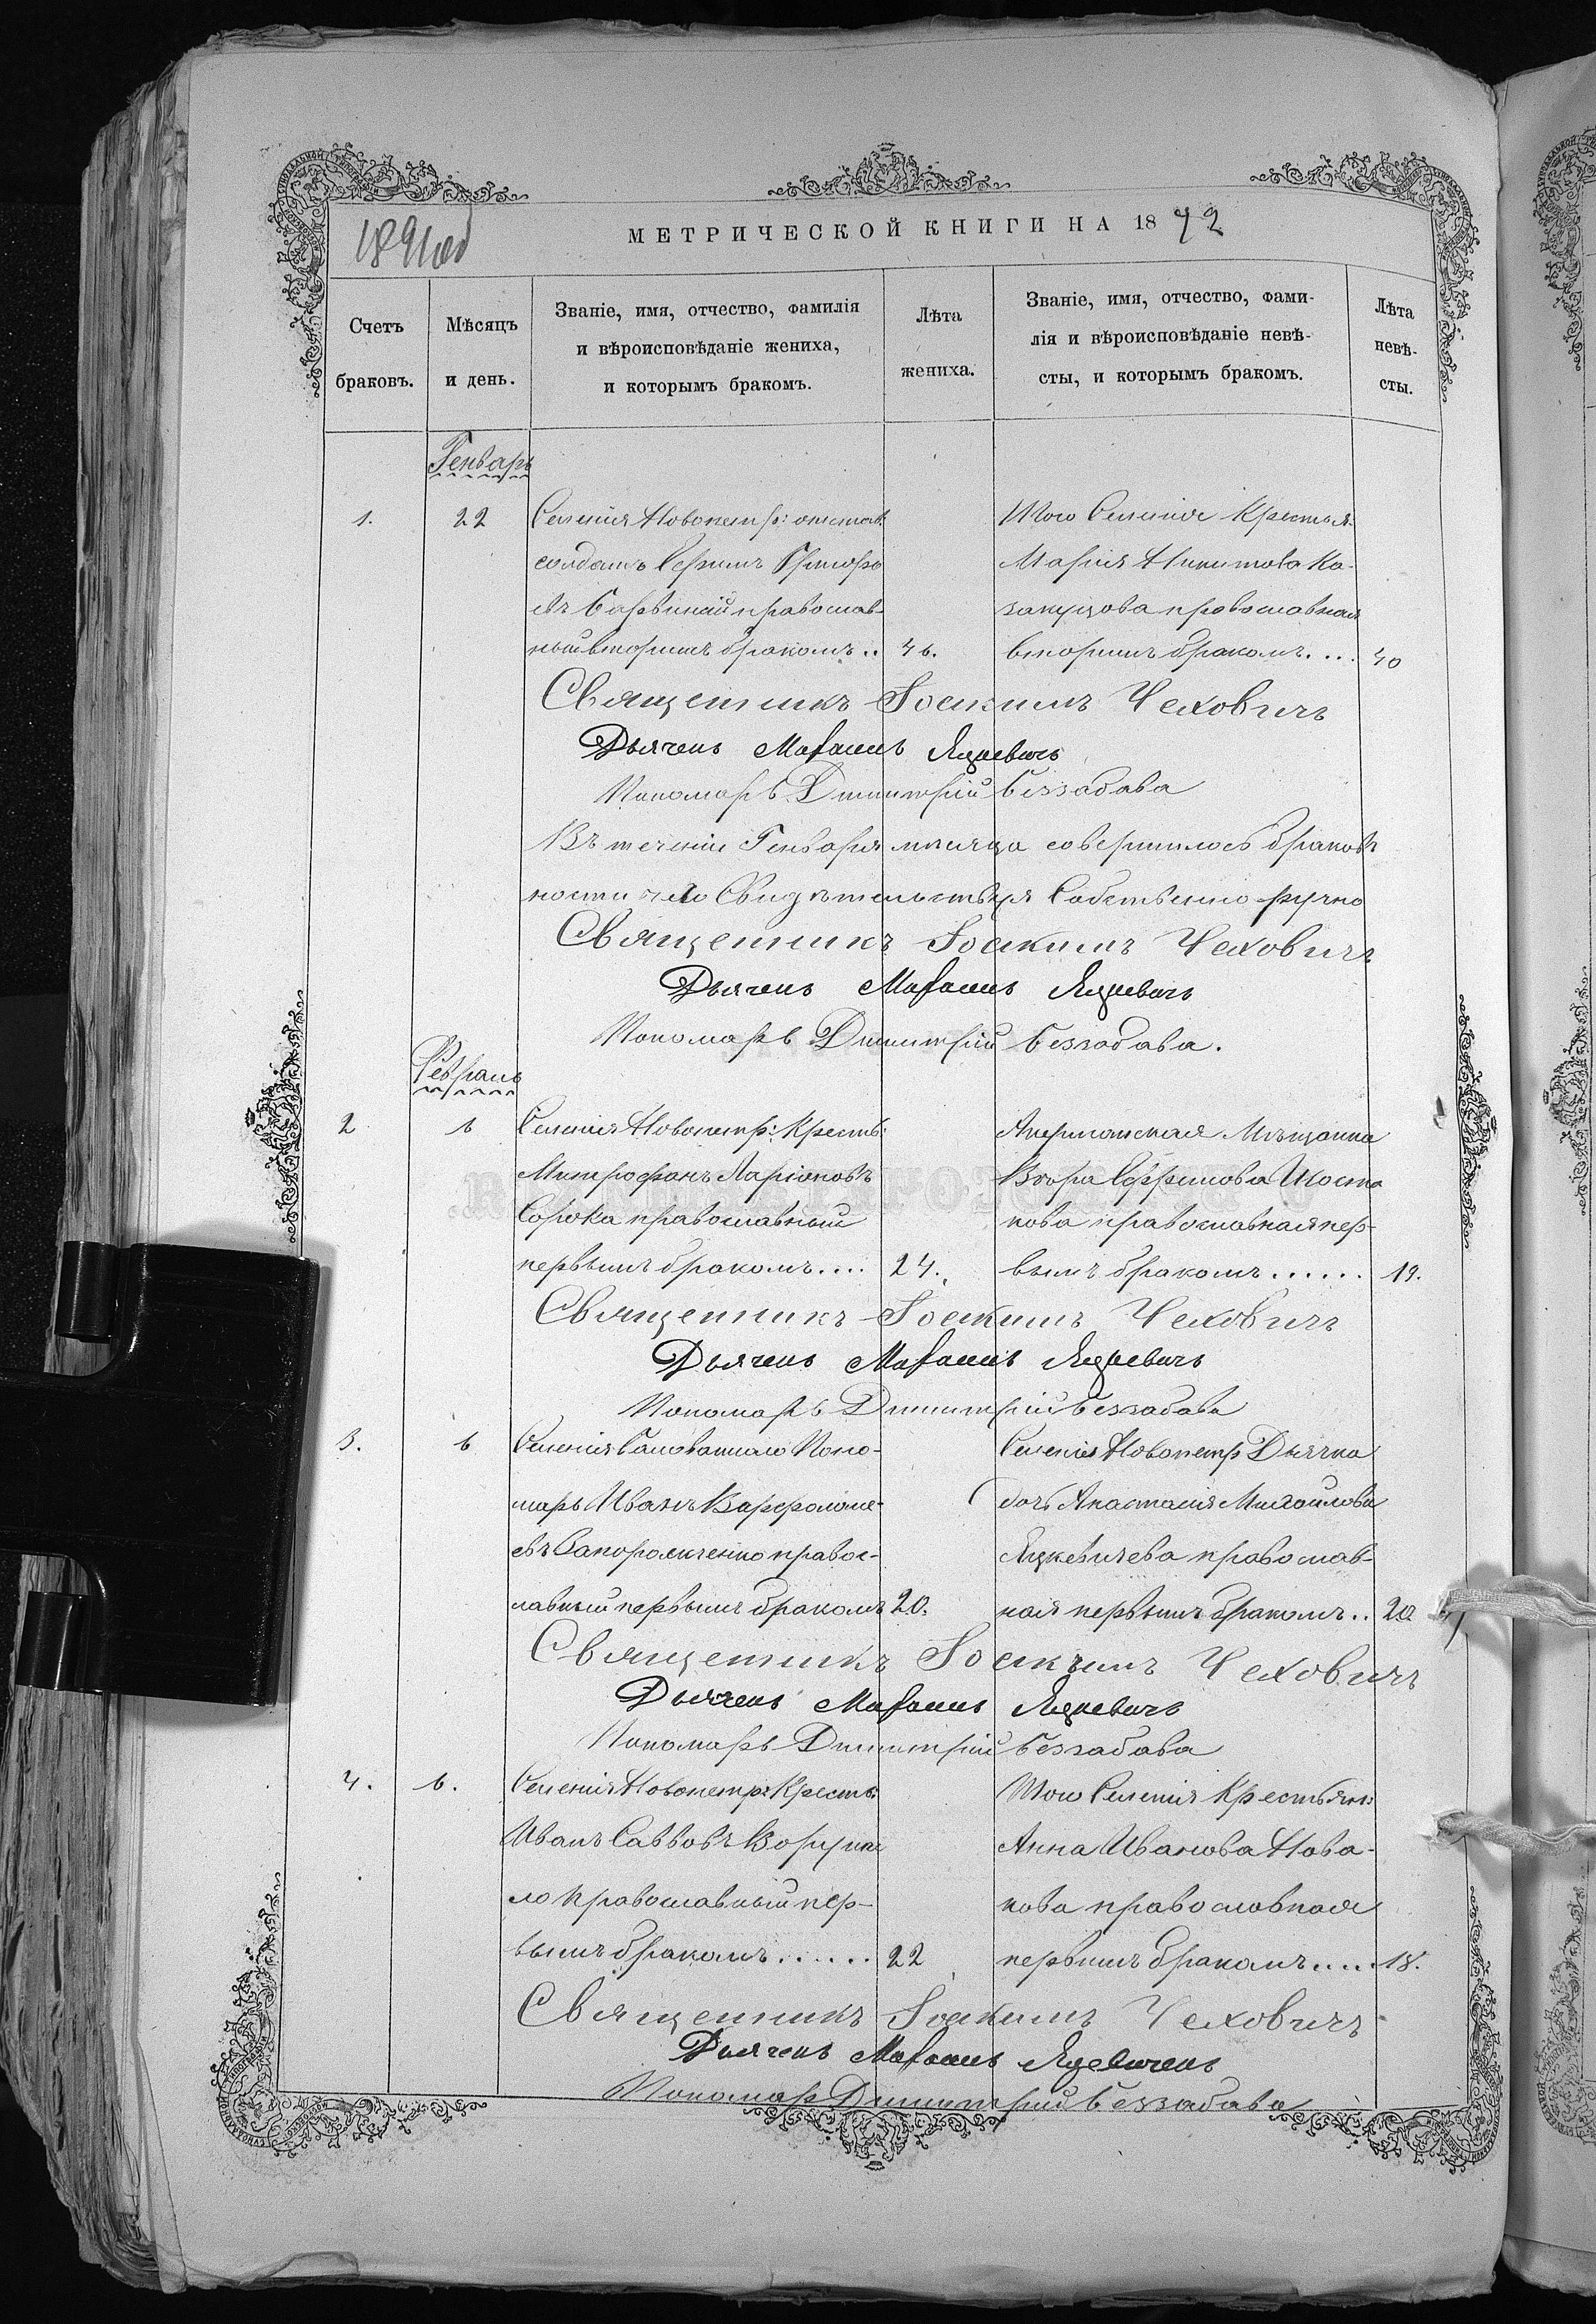 МЕТРИЧЕСКОЙ КНИГИ НА 1872
Счетъ браковъ.
Мѣсяцъ и день.
Званіе, имя, отчество, фамилія
и вѣроисповѣданіе жениха,
и которымъ бракомъ.
Лѣта жениха.
Званіе, имя, отчество, фами-
лія и вѣроисповѣданіе невѣ-
сты, и которымъ бракомъ.
Лѣта невѣ-
сты.
Генварь
1. 22 Селенія Новопетр: отстав:
солдатъ Сергій Григорь
евъ православ-
ный вторымъ бракомъ.. 46.
Того Селенія Крестья:
Марія Никитова Ка-
закуцова православная
вторымъ бракомъ.... 40
Священникъ Іоакимъ Чеховичъ
Дьячекъ Михаилъ Яцкевичъ
Пономарь Димитрій Беззабава
Въ теченіи Генваря мѣсяца совершилось браковъ
Свидѣтельствуя Собственно ручно
Священникъ Іоакимъ Чеховичъ
Дьячекъ Михаилъ Яцкевичъ
Пономарь Димитрій Беззабава.
Февраль
2 6 Селенія Новопетр: Кресть:
Митрофанъ Ларіоновъ
Сорока православный
первымъ бракомъ.... 24.
Акерманская Мѣщанка
Вѣра Ефимова Шоста
кова православная пер-
вымъ бракомъ...... 19.
Священникъ Іоакимъ Чеховичъ
Дьячекъ Михаилъ Яцкевичъ
Пономарь Димитрій Беззабава
3. 6 Селенія Поно-
марь Иванъ Варфоломе-
евъ Запорожченко правос-
лавный первымъ бракомъ 20.
Селенія Новопетр Дьячка
дочь Анастасія Михайлова
Яцкевичева православ-
ная первымъ бракомъ.. 20
Священникъ Іоакимъ Чеховичъ
Дьячекъ Михаилъ Яцкевичъ
Пономарь Димитрій Беззабава
4. 6. Селенія Новопетр: Кресть:
Иванъ Саввовъ
ло православный пер-
вымъ бракомъ...... 22
Того Селенія Крестьян:
Анна Иванова Нова-
кова православная
первымъ бракомъ..... 18.
Священникъ Іоакимъ Чеховичъ
Дьячекъ Михаилъ
Пономарь Димитрій Беззабава